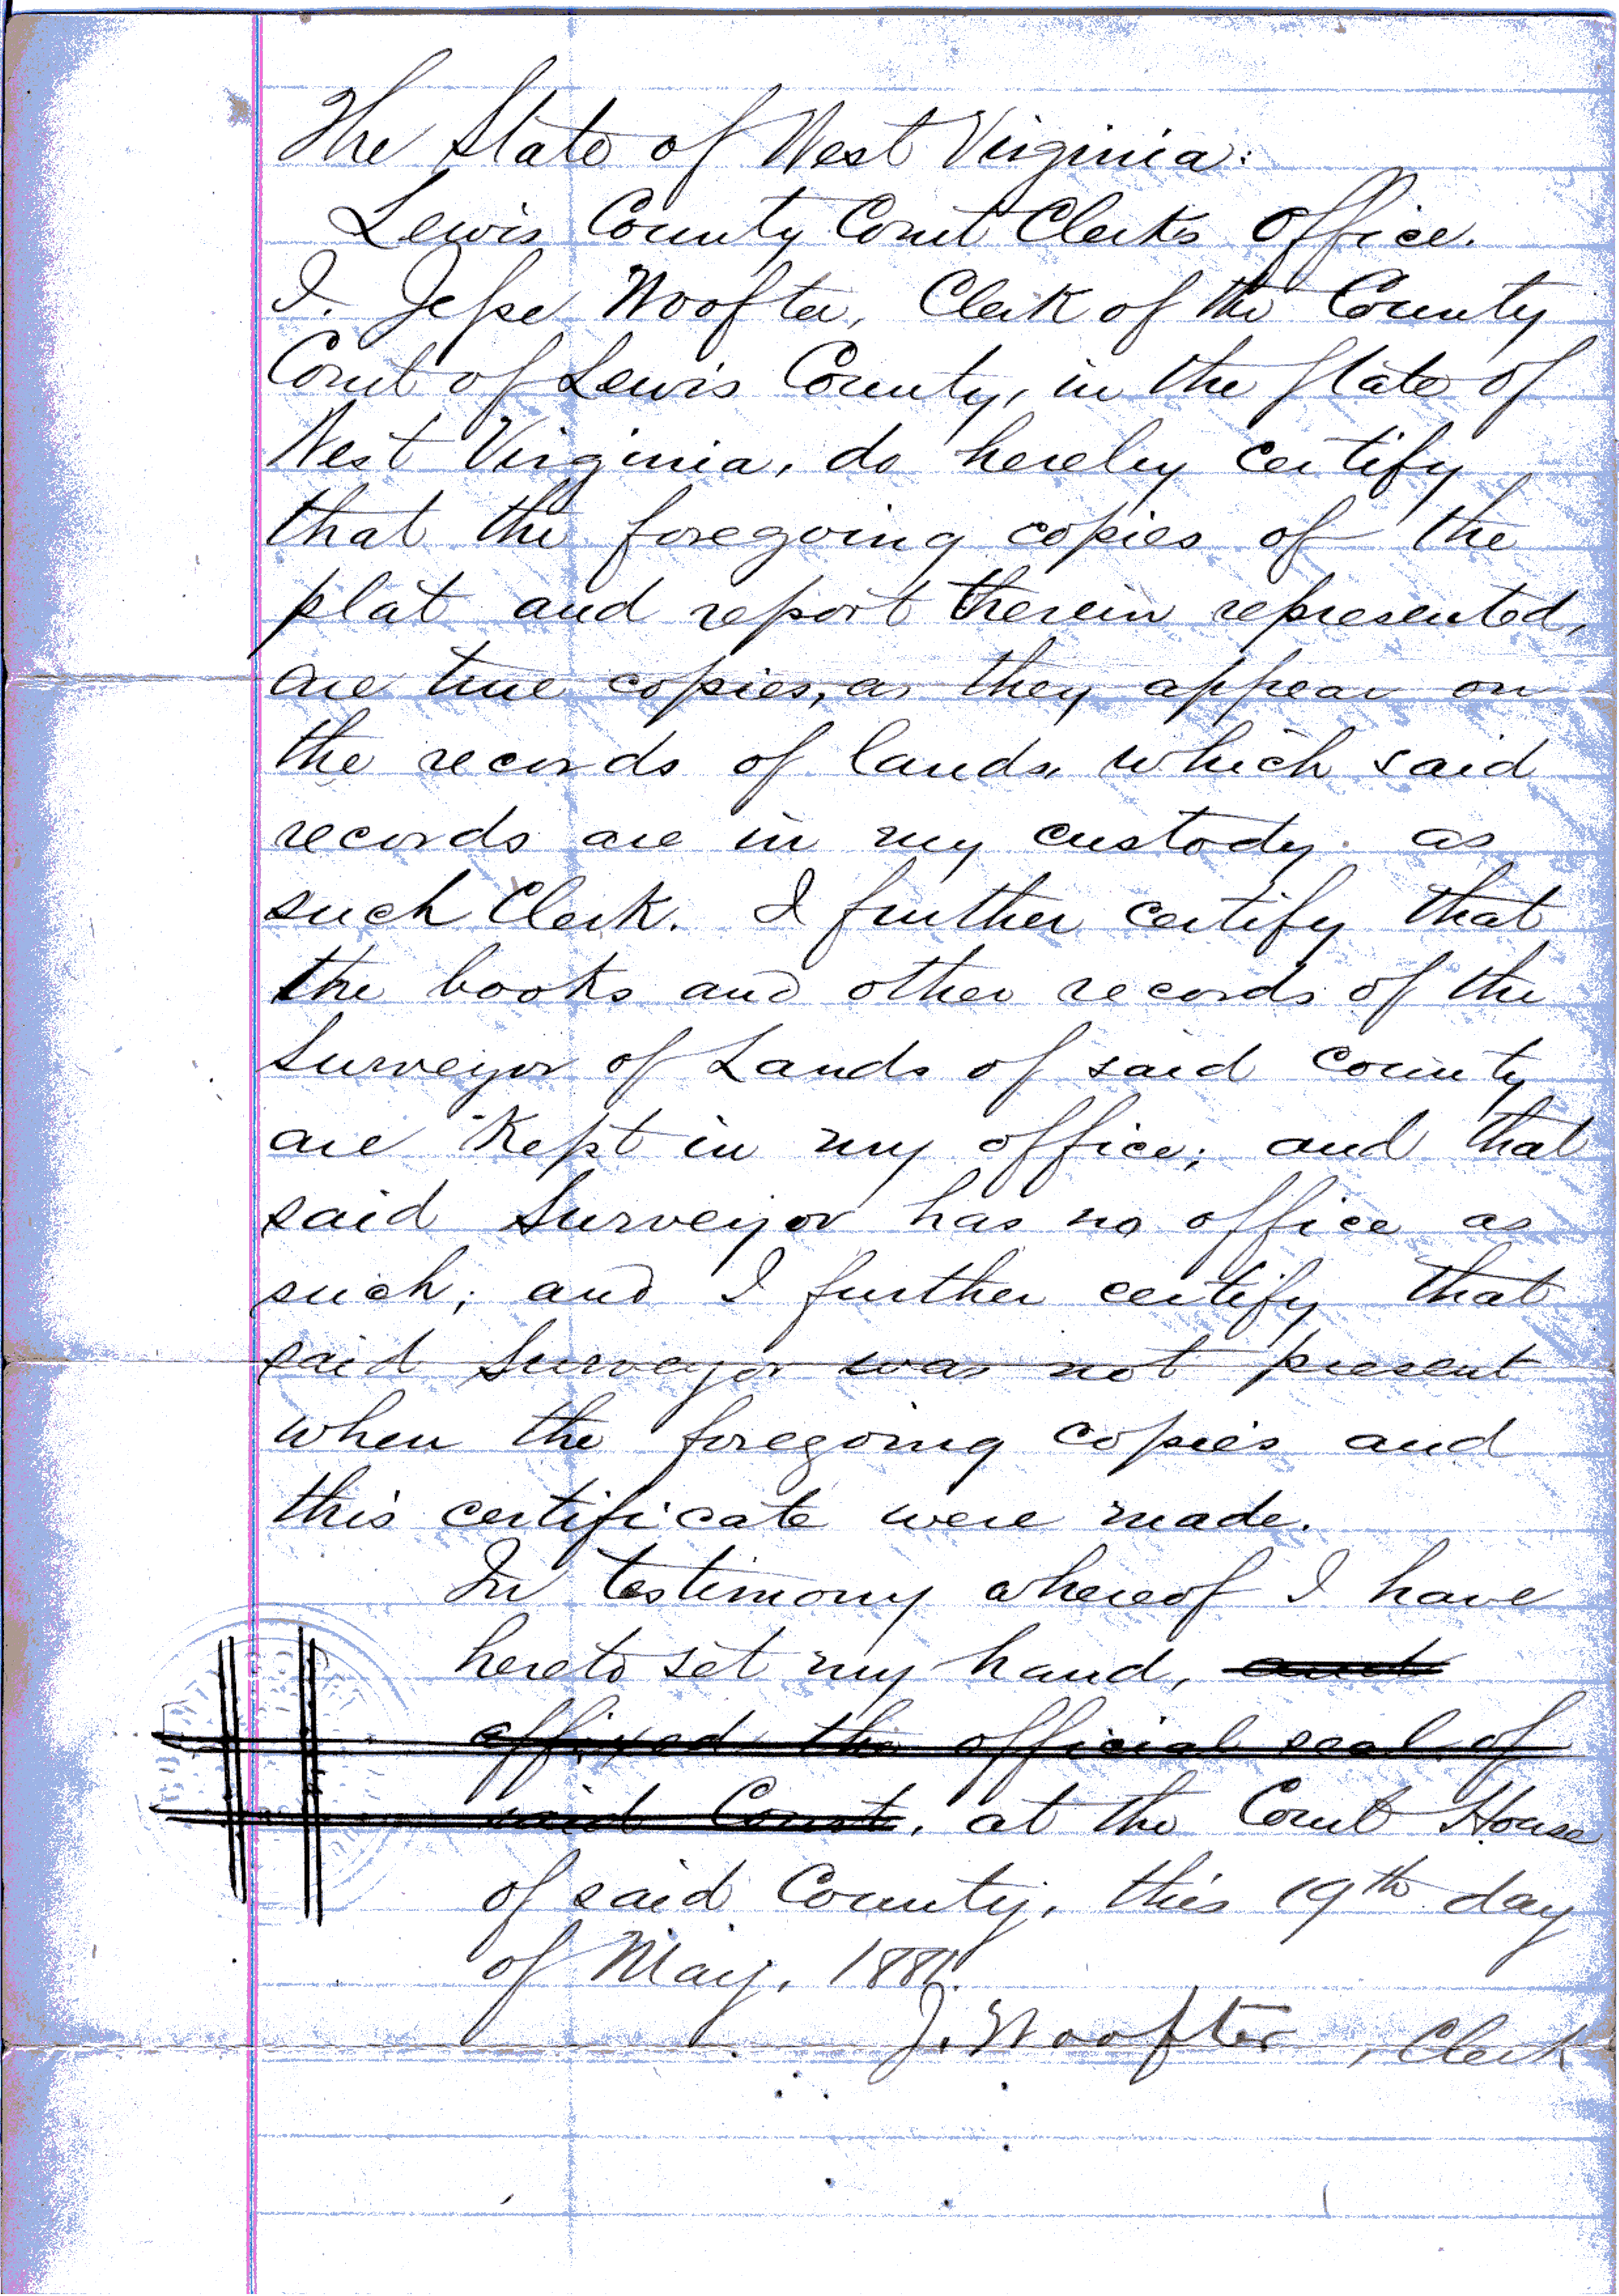 The State of West Virginia:
Lewis County Court Clerks office.
I. Jesse Woofter, Clerk of the County
Court of Lewis County, in the State of
West Virginia, do hereby certify
that the foregoing copies of the
plat and report therein represented,
are true copies, as they appear on
the records of lands, which said
records are in my custody. as
such Clerk. I further certify that
the books and other records of the
Surveyor of Lands of said County
are Kept in my office; and that
said Surveyor has no office as
such; and I further certify that
said Surveyor was not present
when the foregoing copies and
this certificate were made.
In testimony whereof I have
hereto set my hand, and
affixed the official seal of
said Court, at the Court House
of said County, this 19th day
of May, 1881.
J. Woofter, Clerk